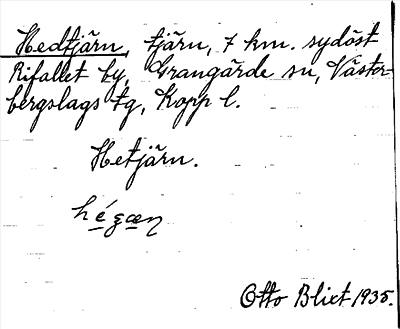 Hedtjärn, tjärn, 7 km. sydöst
Rifallet by, Grangärde sn, Väster-
bergslags tg, Kopp l.
Hetjärn.
Otto Blixt 1935.